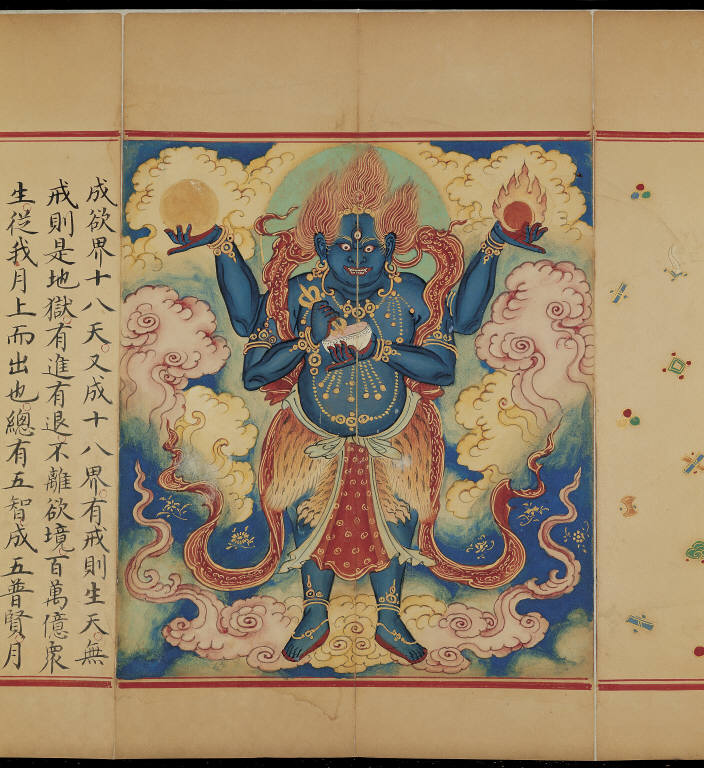 成欲界十八天又成十八界有戒則生天無
戒則是地獄有進有退不離欲境百萬億衆
生從我月上而出也總有五智成五普賢月